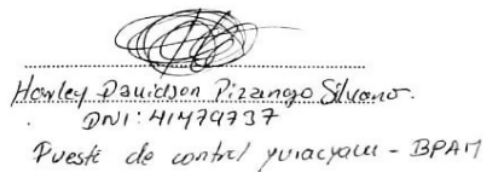 Howley Davidson Pizango Silvano.
DNI: 41479737
Puesto de control yuracyacu - BPAM